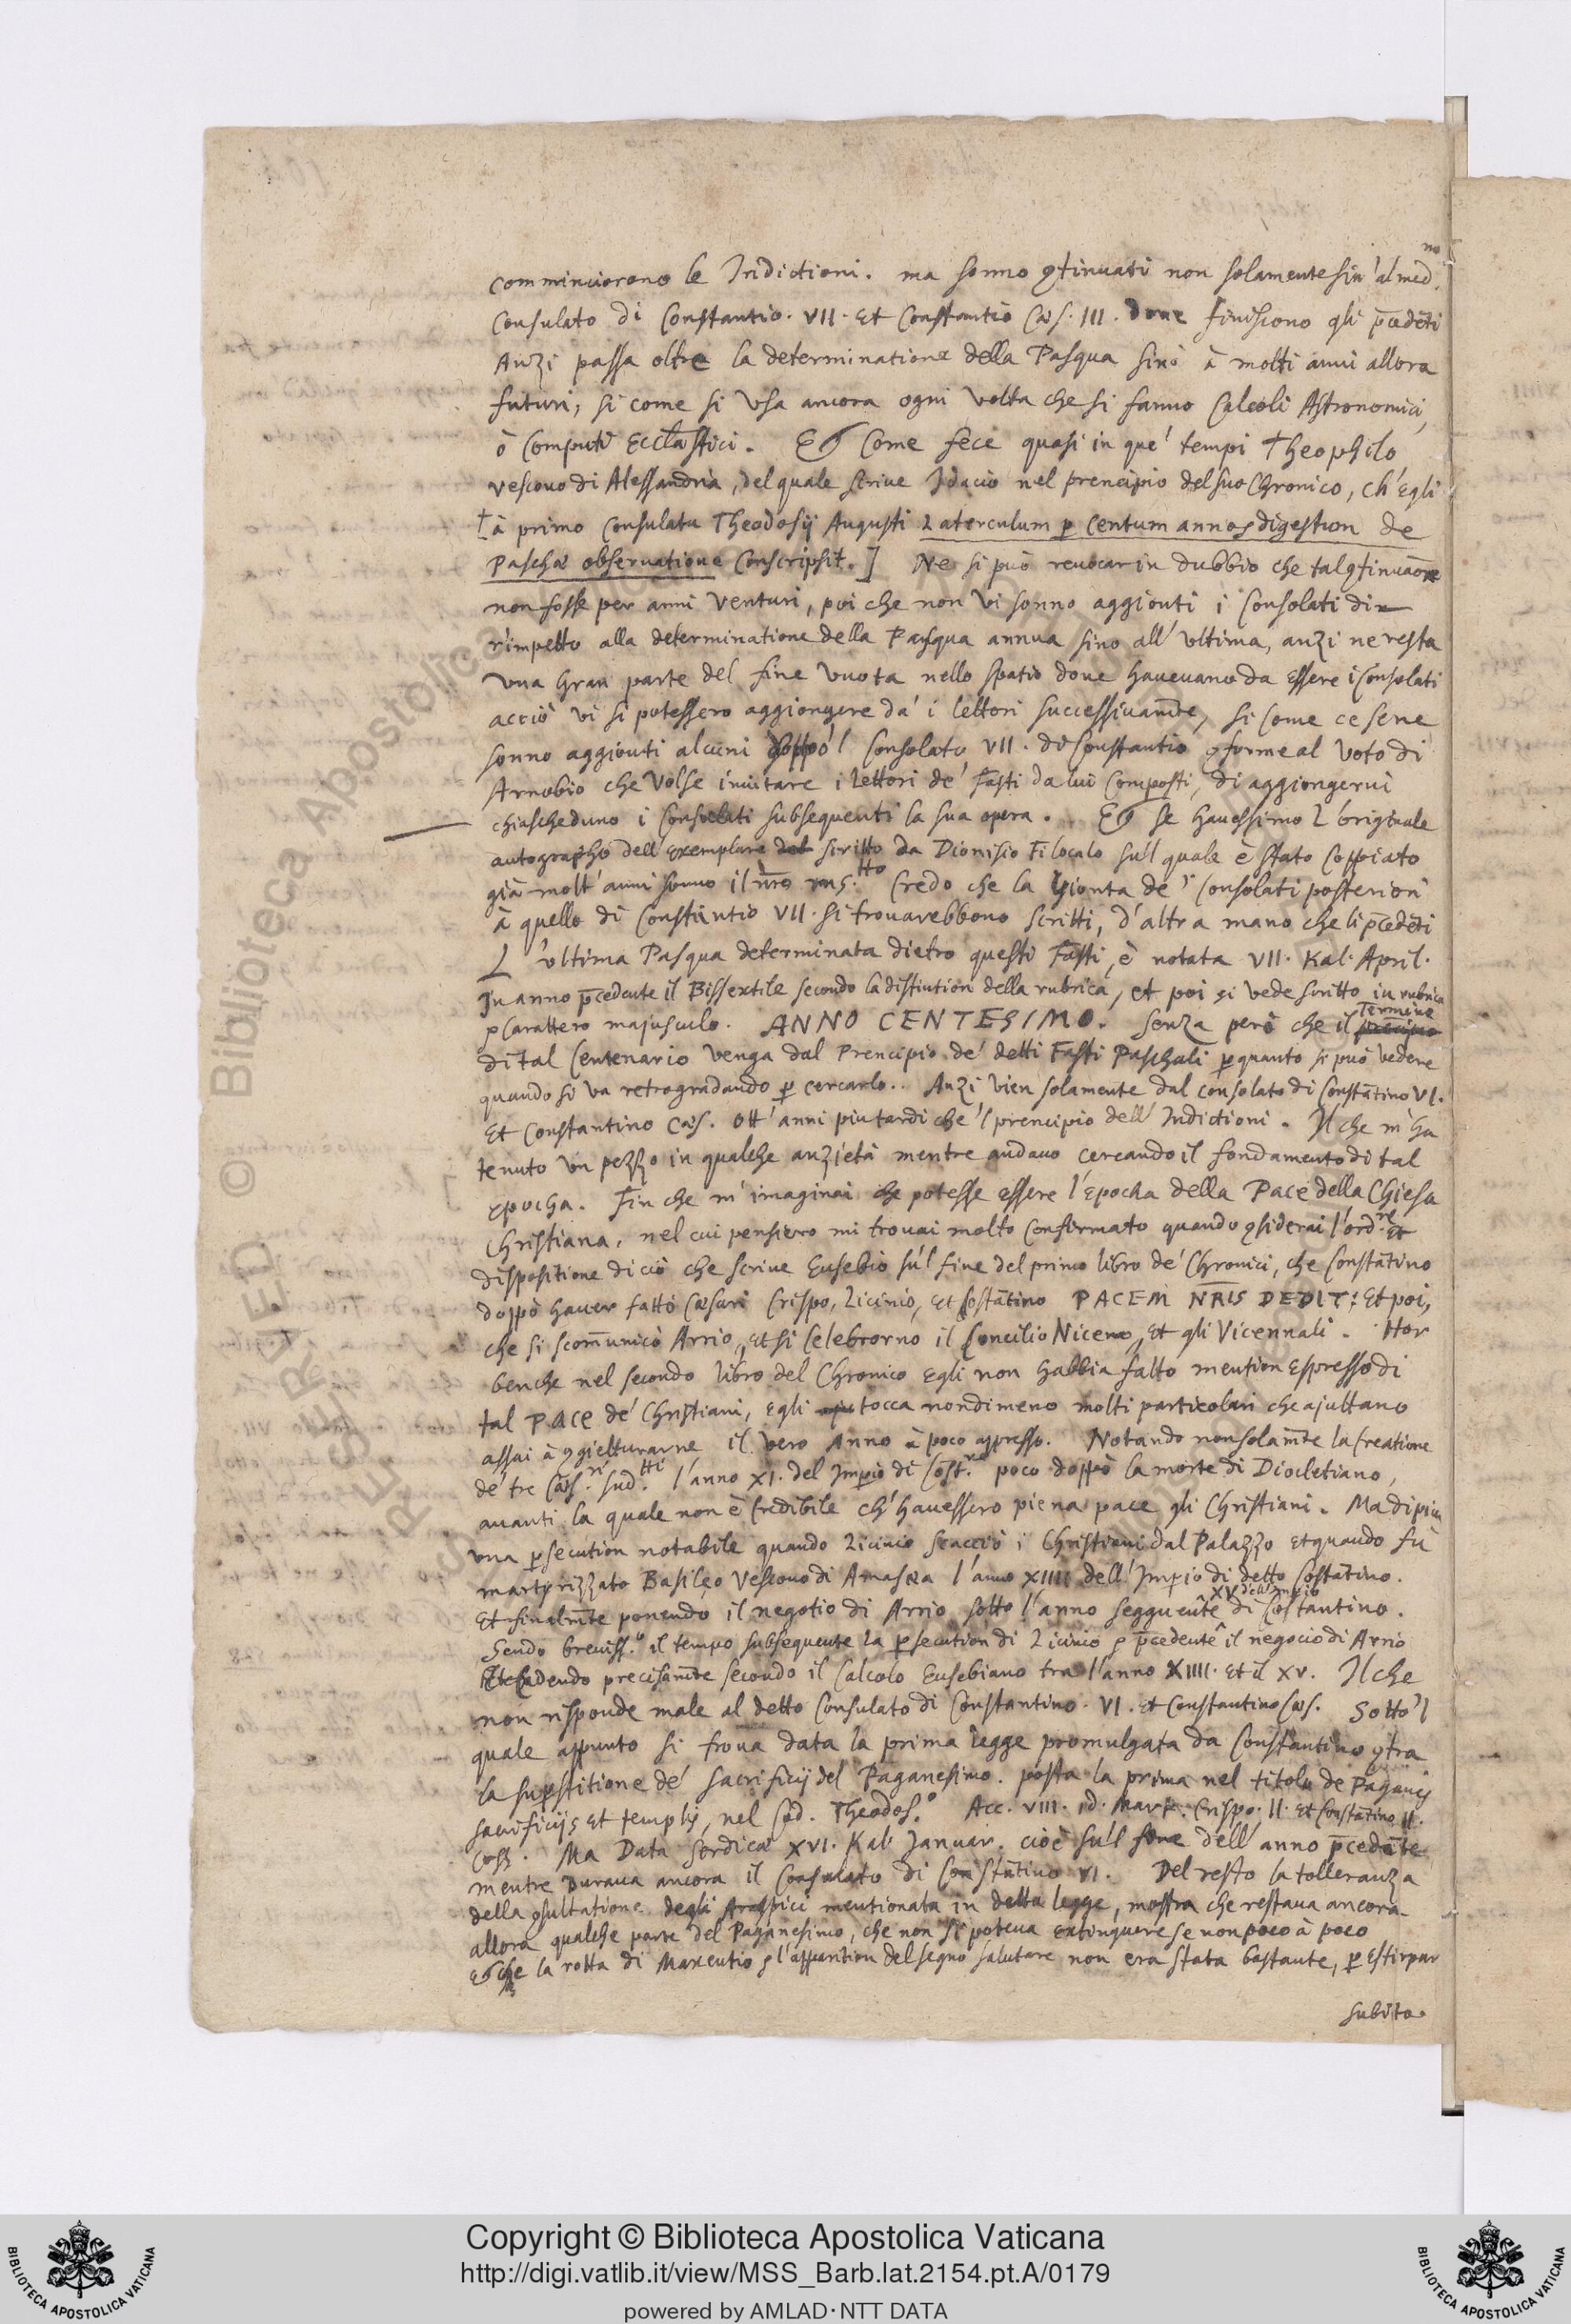 comminciorono le Indictioni. ma sonno ꝯtinuati non solamente sin' al med.mo
Consulato di Constantio. VII. et Constantio Cæs. III. doue finiscono gli p̄cedēti
Anzi passa oltre la determinatione della Pasqua sino à molti anni allora
futuri, si come si usa ancora ogni volta che si fanno Calcoli Astronomici,
ò Computi Eccl̄astici. Et Come fece quasi in que' tempi Theophilo
vescouo di Alessandria, del quale scriue Idacio nel prencipio del suo Chronico, ch'egli
à primo Consulatu Theodosij Augusti Laterculum p Centum annos digestum de
Paschæ obseruatione Conscripsit.] Ne si può reuocar in dubbio che tal ꝯtinuaōne
non fosse per anni venturi, poi che non vi sonno aggionti i Consolati di
rimpetto alla determinatione della Pasqua annua sino all' vltima, anzi ne resta
vna gran parte del fine vuota nello spatio doue haueuano da essere i Consolati
acciò vi si potessero aggiongere da' i lettori successiuam̄te, si come ce sene
sonno aggionti alcuni doppo 'l Consolato VII. di Constantio ꝯforme al voto di
Arnobio che volse inuitare i lettori de' Fasti da lui Composti, di aggiongerui
chiascheduno i Consolati subsequenti la sua opera. Et se hauessimo l'originale
autographo dell' exemplare scritto da Dionisio Filocalo sul quale è stato Coppiato
già molt' anni sonno il nr̄o ms.tto Credo che la gionta de' i Consolati posteriori
à quello di Constantio VII. si trouarebbono scritti, d'altra mano che li p̄cedēti
L'vltima Pasqua determinata dietro questi Fasti, è notata VII. Kal. April.
In anno p̄cedente il Bissextile secondo la distintion della rubrica, et poi si vede scritto in rubrica
p Carattero majusculo. ANNO CENTESIMO. senza però che il termine
di tal Centenario venga dal Prencipio de' detti Fasti Paschali p quanto si può vedere
quando si va retrogradando p cercarlo.. Anzi vien solamente dal consolato di Constātino VI.
Et Constantino Cæs. ott' anni piu tardi che 'l prencipio dell' Indictioni. Il che m'ha
tenuto un pezzo in qualche anzietà mentre andauo cercando il fondamento di tal
epocha. Fin che m'imaginai che potesse essere l'Epocha della Pace della Chiesa
Christiana, nel cui pensiero mi trouai molto Confirmato quando ꝯsiderai l'ord.ne et
dispositione di ciò che scriue Eusebio sul fine del primo libro de' Chronici, che Constātino
doppò hauer fatti Cæsari Crispo, Licinio, et Costātino PACEM NR̄IS DEDIT: Et poi,
che si scom̄unicò Arrio, et si Celebrorno il Concilio Niceno, Et gli Vicennali. Hor
benche nel secondo libro del Chronico egli non habbia fatto mention Espresso di
tal PACE de' Christiani, egli tocca nondimeno molti particolari che ajuttano
assai à ꝯgietturarne il vero Anno à poco appresso. Notando non solam̄te la Creatione
de' tre Cæs.ri sud.tti l'anno XI. del Imp̄io di Cōst.no poco doppò la morte di Diocletiano,
auanti la quale non è Credibile ch' hauessero piena pace gli Christiani. Ma di piu
vna p̄secution notabile quando Licinio scacciò i Christiani dal Palazzo et quando fù
martyrizzato Basileo Vescouo di Amasea l'anno XIIII dell' Imp̄io di detto Costātino.
Et finalm̄te ponendo il negotio di Arrio sotto l'anno segguente XV dell'Impio di Costantino.
Sendo breuiss.o il tempo subsequente la p̄secution di Licinio e p̄cedente il negocio di Arrio
Et Cadendo precisam̄te secondo il Calcolo Eusebiano tra l'anno XIIII. et il XV. Il che
non risponde male al detto Consulato di Constantino. VI. et Constantino Cæs. Sotto 'l
quale appunto si troua data la prima legge promulgata da Constantino ꝯtra
la sup̄stitione de' sacrificij del Paganesimo. posta la prima nel titolo de Paganis
sacrificijs et templis, nel Cod. Theodos.o Acc. VIII. id. Mart. Crispo. II. et Constātino II.
Coss. Ma Data Serdicæ XVI. Kal. Januar. cioè sul fine dell' anno p̄cedēte
mentre Duraua ancora il Consulato di Constātino VI. Del resto la tolleranza
della ꝯsultatione degli Aruspici mentionata in detta legge, mostra che restaua ancora
allora qualche parte del Paganesimo, che non si poteua extinguere se non poco à poco
Et che la rotta di Maxentio e l'apparition del segno salutare non era stata bastante, p estirpar
subito.
Copyright © Biblioteca Apostolica Vaticana
http://digi.vatlib.it/view/MSS_Barb.lat.2154.pt.A/0179
powered by AMLAD·NTT DATA
BIBLIOTECA APOSTOLICA VATICANA
BIBLIOTECA APOSTOLICA VATICANA